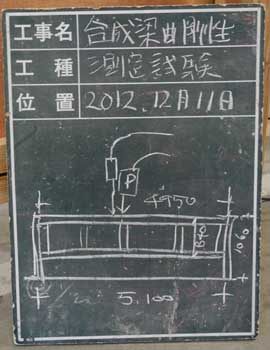 工事名 合成梁曲剛性
工種 測定試験
位置 2012.12月11日
P
4950
840
1060
5.100